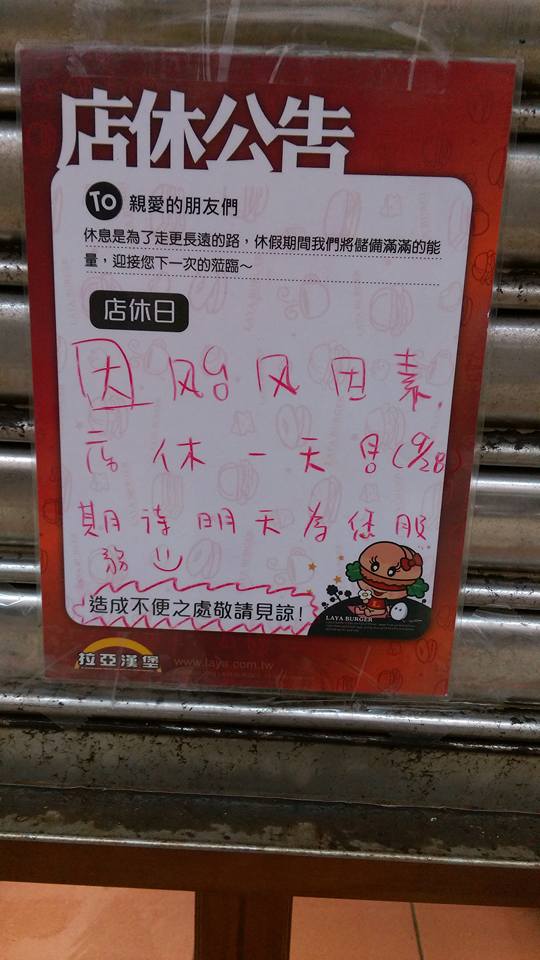 店休公告
TO 親愛的朋友們
休息是為了走更長遠的路，休假期間我們將儲備滿滿的能
量，迎接您下一次的蒞臨～
店休日
因颱风因素,
店休一天 (9/28
期待明天為您服
務
造成不便之處敬請見諒!
LAYA BURGER
拉亞漢堡 www.laya.com.tw